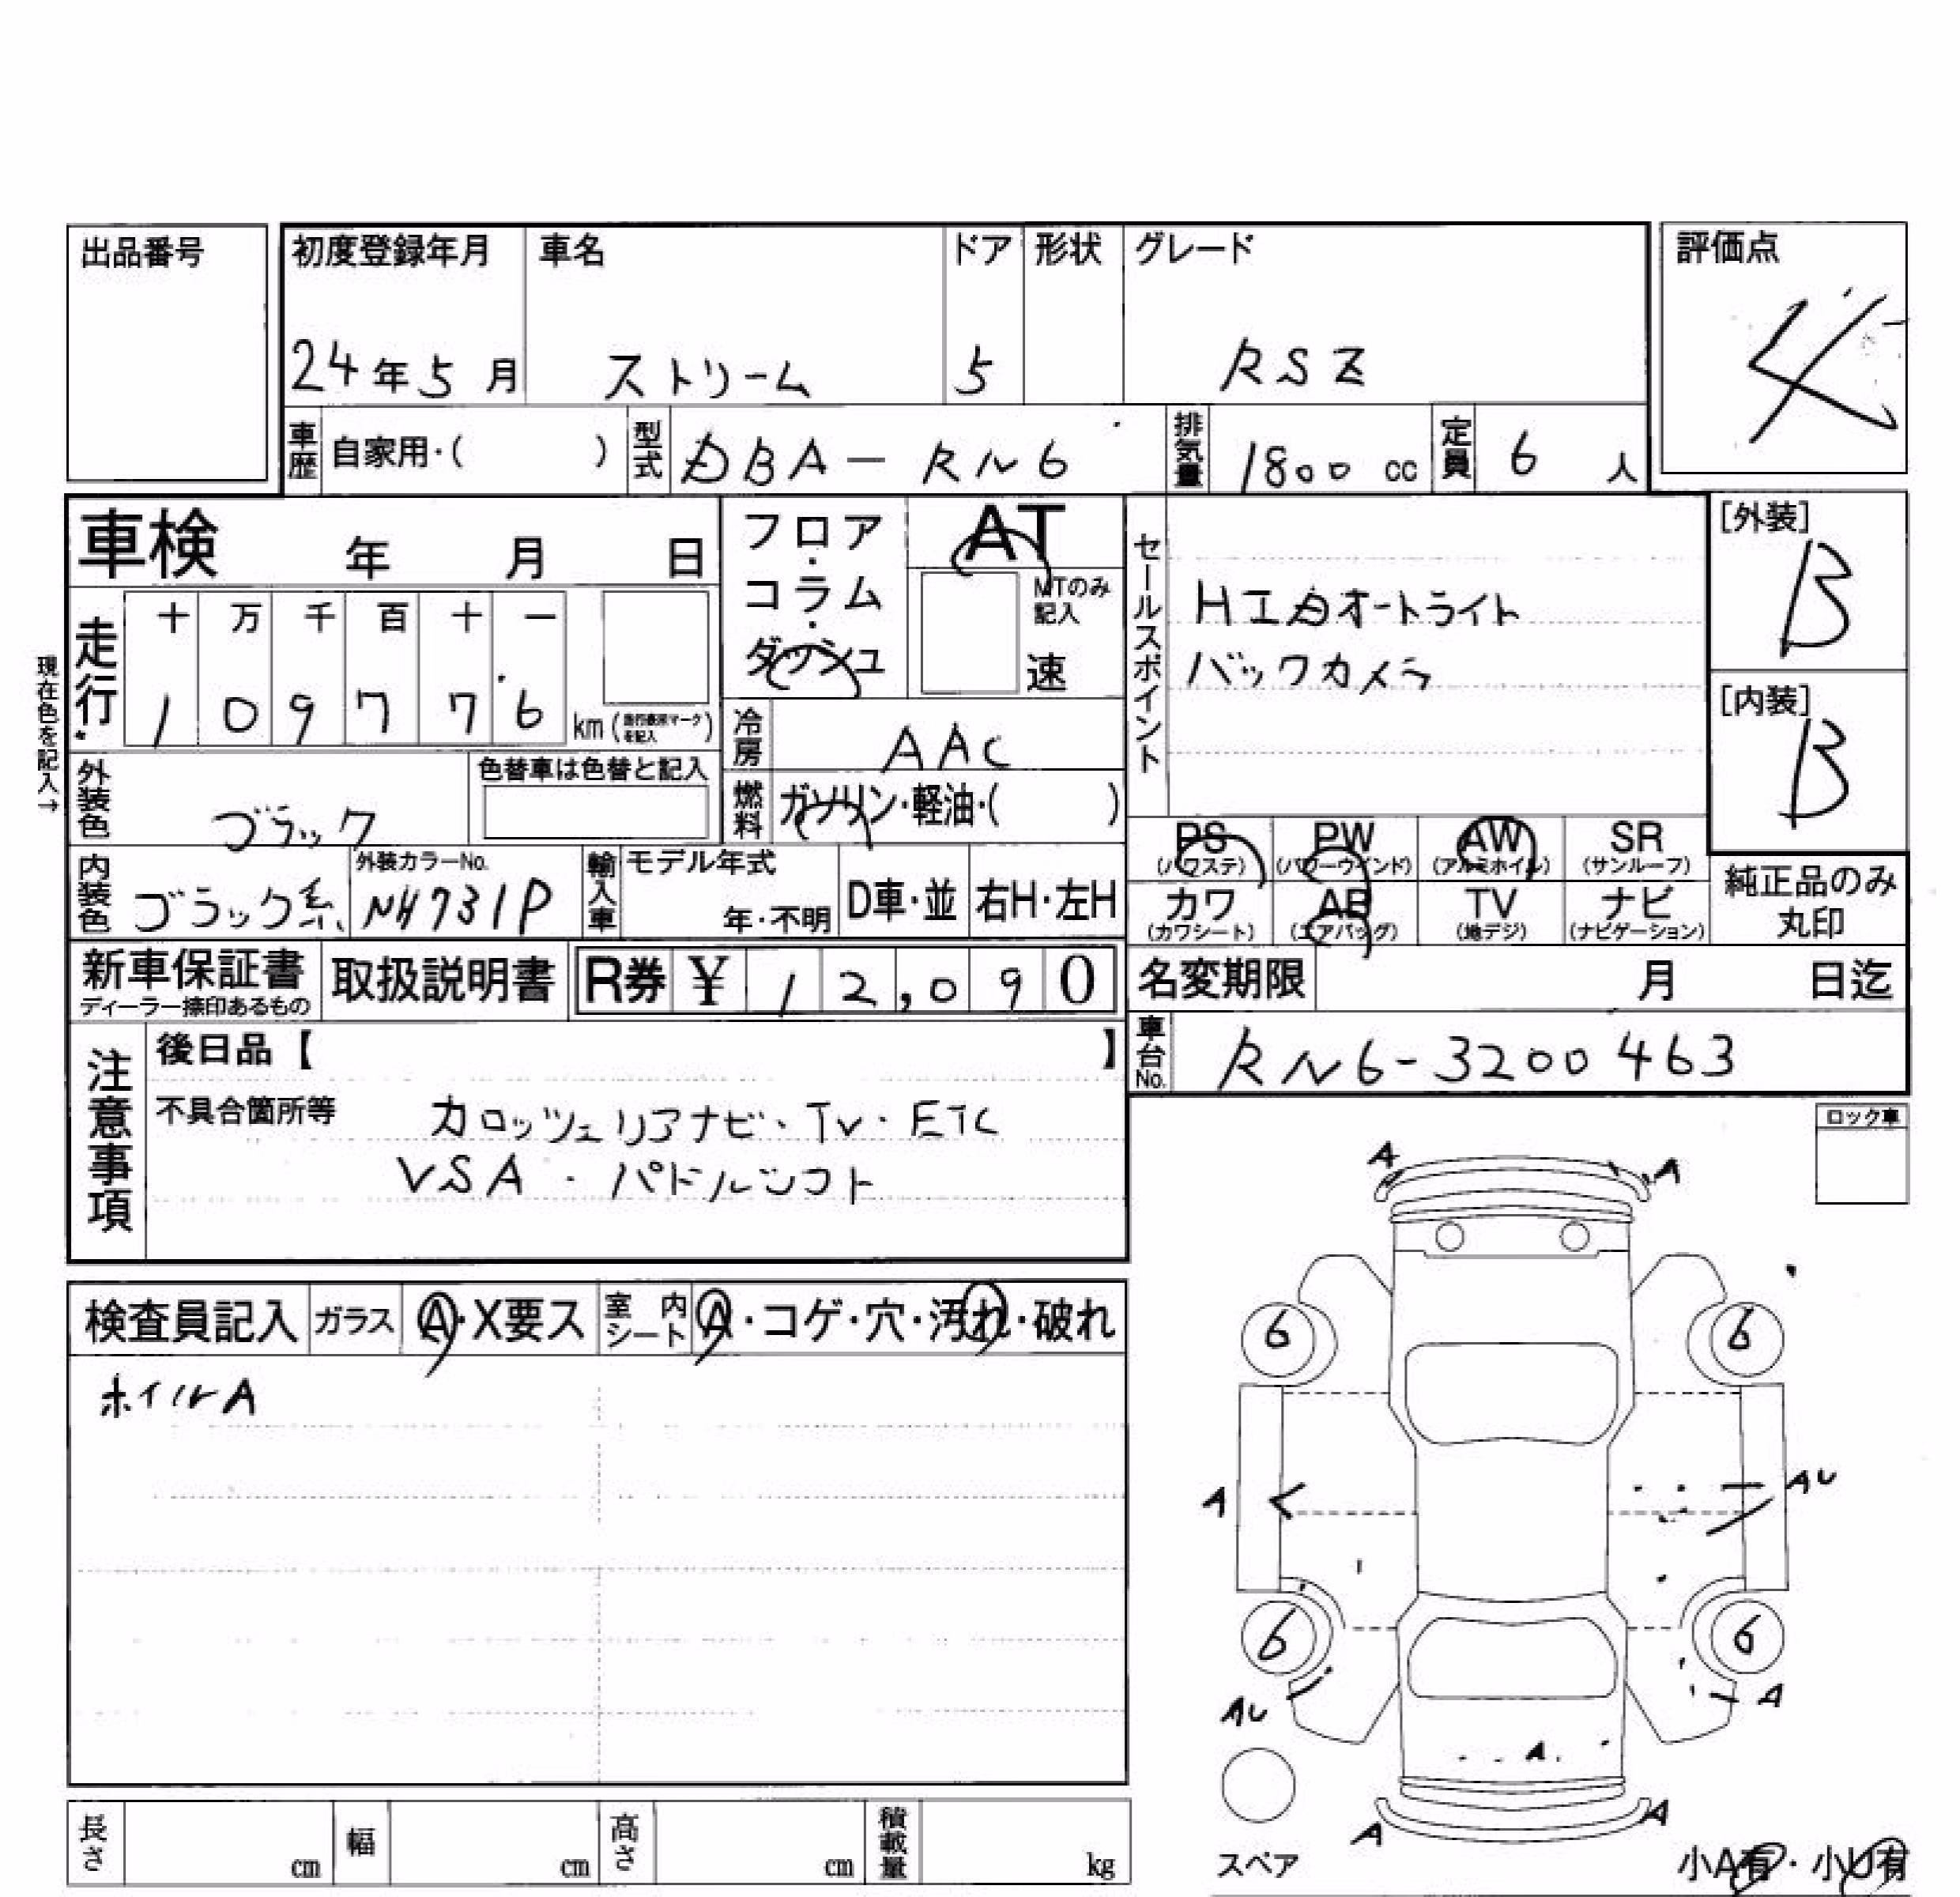 出品番号
初度登録年月 車名 ドア 形状 グレード
評価点
24年5月 ストリーム 5 RSZ
4
車歴 自家用・( ) 型式 DBA-RN6 排気量 1800 cc 定員 6 人
車検 年 月 日
フロア・コラム・ダッシュ
AT
MTのみ記入
速
セールスポイント
HIDオートライト
バックカメラ
[外装]
B
[内装]
B
現在色を記入→
走行
十 万 千 百 十 一
1 0 9 7 7 6 km (走行表示マークを記入)
冷房 AAC
燃料 ガソリン・軽油・( )
外装色 ブラック
色替車は色替と記入
内装色 ブラック系
外装カラーNo.
NH731P
輸入車 モデル年式
年・不明 D車・並 右H・左H
PS PW AW SR
(パワステ) (パワーウインド) (アルミホイル) (サンルーフ)
カワ AB TV ナビ
(カワシート) (エアバッグ) (地デジ) (ナビゲーション)
純正品のみ
丸印
新車保証書 取扱説明書 R券 ¥ 12,090
ディーラー捺印あるもの
名変期限 月 日迄
車台No. RN6-3200463
注意事項
後日品【 】
不具合箇所等 カロッツェリアナビ・TV・ETC
VSA・パドルシフト
ロック車
検査員記入 ガラス A・X要ス 室内シート A・コゲ・穴・汚れ・破れ
ホイルA
A A
6 6
A AU
6 6
AU A
A
A A
スペア
小A有・小U有
長さ cm 幅 cm 高さ cm 積載量 kg